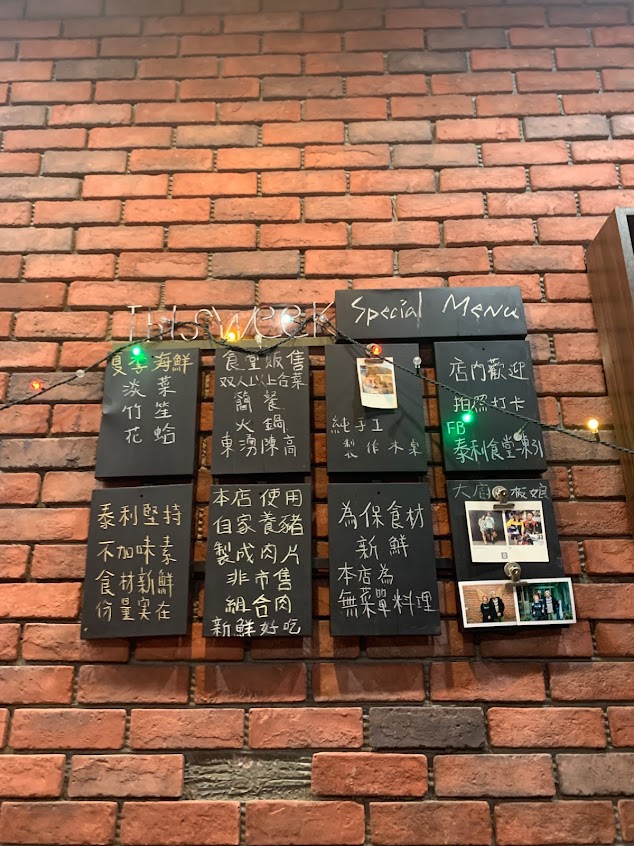 This week
Special Menu
夏季海鮮
淡菜
竹笙
花蛤
食堂販售
双人以上合菜
簡餐
火鍋
東湧陳高
純手工
製作木桌
店內歡迎
拍照打卡
FB
泰利食堂東引
泰利堅持
不加味素
食材新鮮
份量實在
本店使用
自家養豬
製成肉片
非市售
組合肉
新鮮好吃
為保食材
新鮮
本店為
無菜單料理
大廚 板娘